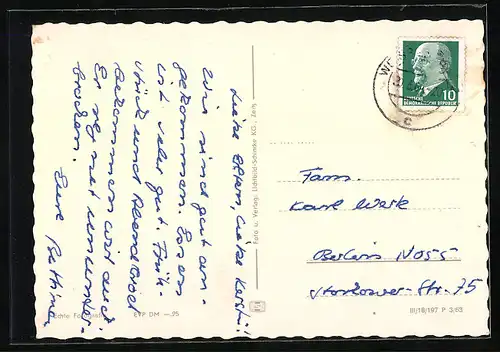 Liebe Eltern, Liebe Kerstin!
Wir sind gut an-
gekommen. Essen
ist sehr gut. Früh-
stück und Abendbrot
bekommen wir auch
Er
brochen.
Eure Bettina
Echte Fotografie
EVP DM —.95
Foto u. Verlag: Lichtbild-Schincke KG., Zeitz
DEUTSCHE
DEMOKRATISCHE REPUBLIK
10
c
Fam.
Karl Werk
Berlin NO55
Storkower-Str. 75
BI/18/197 P 3/63